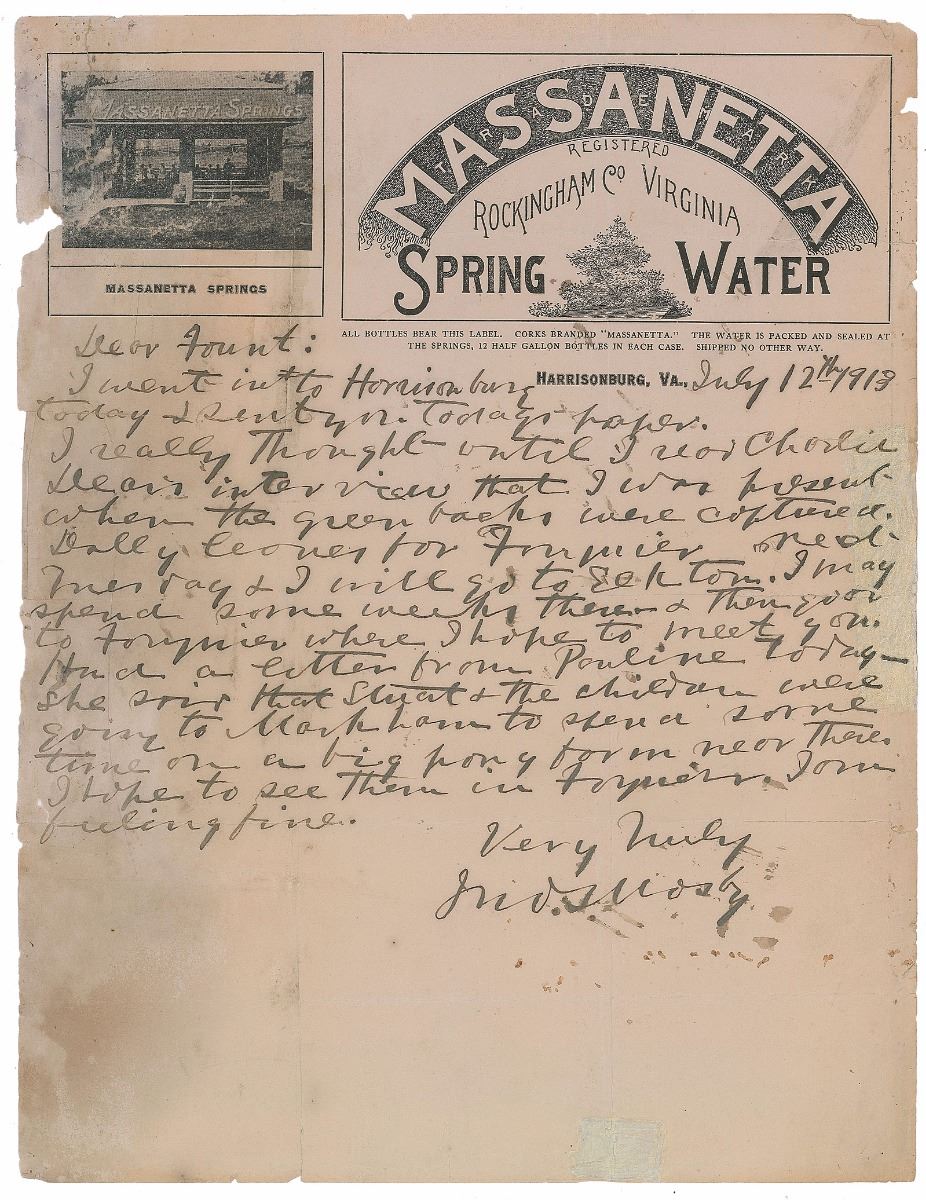 MASSANETTA SPRINGS
MASSANETTA SPRINGS
MASSANETTA
TRADE MARK
REGISTERED
ROCKINGHAM Co VIRGINIA
SPRING WATER
ALL BOTTLES BEAR THIS LABEL. CORKS BRANDED "MASSANETTA." THE WATER IS PACKED AND SEALED AT
THE SPRINGS, 12 HALF GALLON BOTTLES IN EACH CASE. SHIPPED NO OTHER WAY.
HARRISONBURG, VA., July 12th 1913
Dear Fount:
I went into Harrisonburg
today & sent you today's paper.
I really thought until I read Charlie
Dear's interview that I was present
when the green backs were captured.
leaves for next
Tuesday & I will go to Elkton. I may
spend some weeks there & then go on
to where I hope to meet you.
Had a letter from Pauline today-
She said that Stuart & the children were
going to Markham to spend some
time on a big pony farm near there.
I hope to see them in I am
feeling fine.
Very Truly
Jno. S Mosby